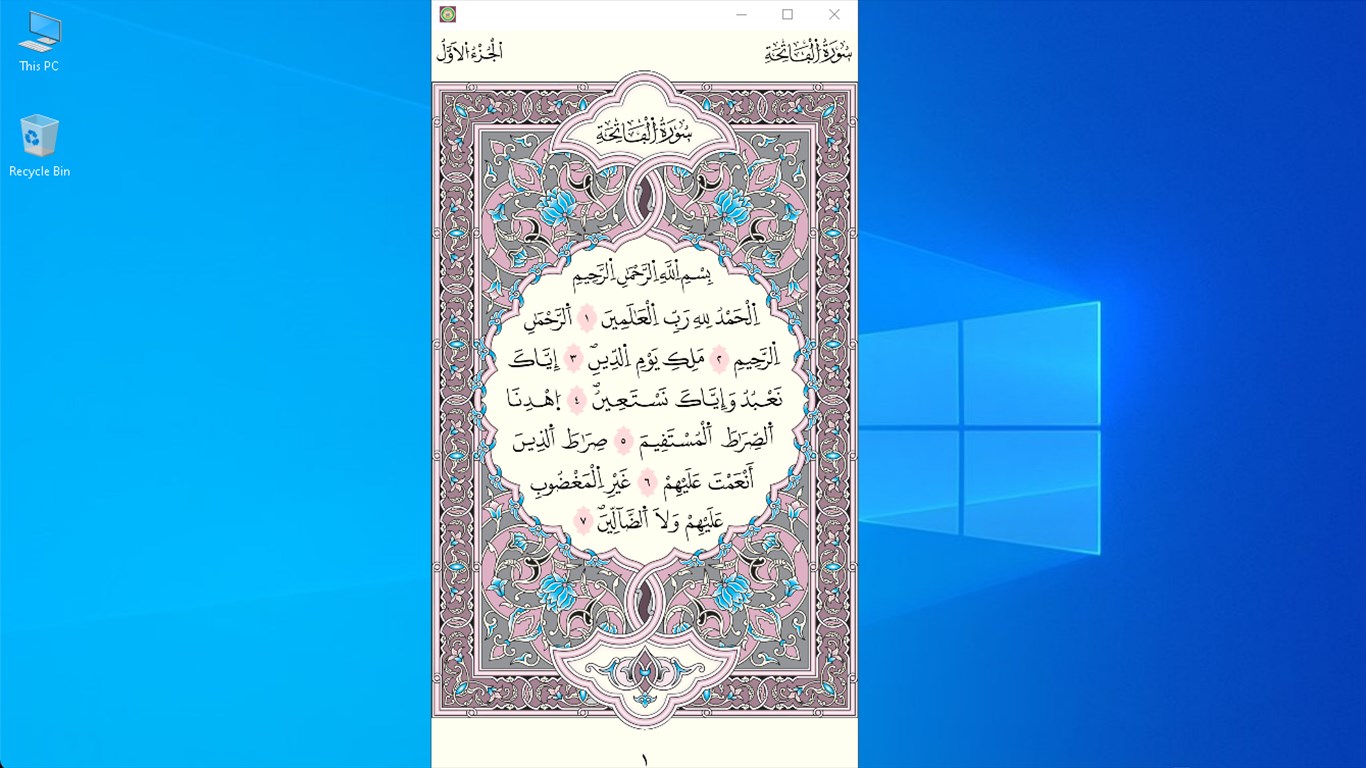 This PC
Recycle Bin
اَلْجُزْءُ الْأَوَّلُ
سُورَةُ الْفَاتِحَةِ
سُورَةُ الْفَاتِحَةِ
بِسْمِ اِ۬للَّهِ اِ۬لرَّحْمَٰنِ اِ۬لرَّحِيمِ
اِ۬لْحَمْدُ لِلهِ رَبِّ اِ۬لْعَٰلَمِينَ ١ اَ۬لرَّحْمَٰنِ
اِ۬لرَّحِيمِ ٢ مَلِكِ يَوْمِ اِ۬لدِّينِۖ ٣ إِيَّاكَ
نَعْبُدُ وَإِيَّاكَ نَسْتَعِينُۖ ٤ اِ۪هْدِنَا
اَ۬لصِّرَٰطَ اَ۬لْمُسْتَقِيمَ ٥ صِرَٰطَ اَ۬لذِينَ
أَنْعَمْتَ عَلَيْهِمْ ٦ غَيْرِ اِ۬لْمَغْضُوبِ
عَلَيْهِمْ وَلَا اَ۬لضَّآلِّينَۖ ٧
١